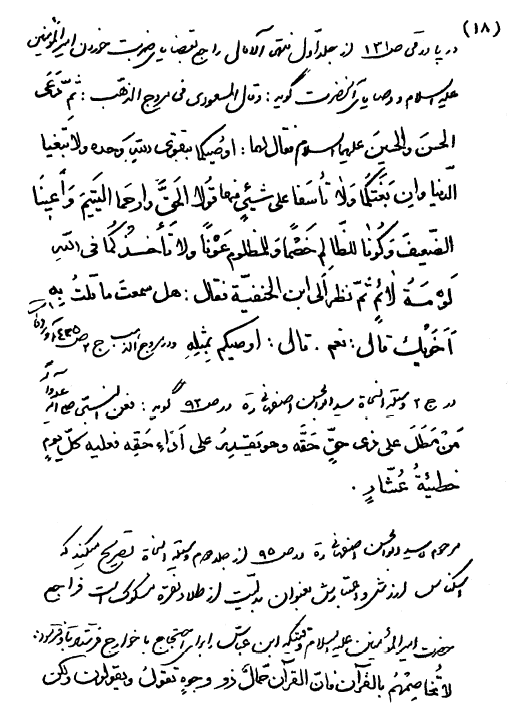 (۱۸)
در پاورقی ص ۱۳۱ از جلد اول منتهی الامال راجع بقضایای ضربت خوردن امیرالمؤمنین
علیه السلام و وصایای آنحضرت گوید: وقال المسعودی فی مروج الذهب: ثُمَّ دَعَی
الحسنَ والحسینَ علیهما السلام فقال لهما: اوُصیکما بتقوی اللهِ وحده ولا تَبغیا
الدّنیا واِن بَغَتکُما وَلا تأسَفا علی شَیئٍ منها قُولا الحَقَّ وارحما الیتیمَ وَأعینا
الضّعیفَ وَکُونا للظّالمِ خَصْماً وَللمظلومِ عَوْناً ولا تَأخُذکُما فی اللهِ
لَوْمَةُ لائمٍ ثُمّ نَظَرَ اِلَی ابن الحنفیّة فقال: هل سمعتَ ما قلتُ بِهِ
اَخَوَیْكَ قالَ: نعم. قال: اوُصیکم بِمثلِهِ ودر مروج الذهب ج ۲ ص ۴۲۵
در ج ۲ وسیلة النجاة سید ابوالحسن اصفهانی ره در ص ۹۲ گوید: فعن النبی صلی الله علیه وآله
مَنْ مَطَلَ علی ذی حقٍّ حَقَّه وهو یَقدِرُ علی اَدَاءِ حَقِّه فعلیه کلَّ یومٍ
خطیئةُ عَشّارٍ.
مرحوم سید ابوالحسن اصفهانی ره در ص ۹۵ از جلد دوم وسیلة النجاة تصریح میکند که
اسکناس ارزش و اعتبارش بعنوان بدلیت از طلا و نقره مسکوک است فراجع
حضرت امیرالمؤمنین علیه السلام وقتیکه ابن عباس را برای احتجاج با خوارج فرستاد باو فرمود:
لا تُخاصِمْهُم بالقرآن فانّ القرآن حَمّالٌ ذو وجوهٍ تقولُ ویقولون ولکن